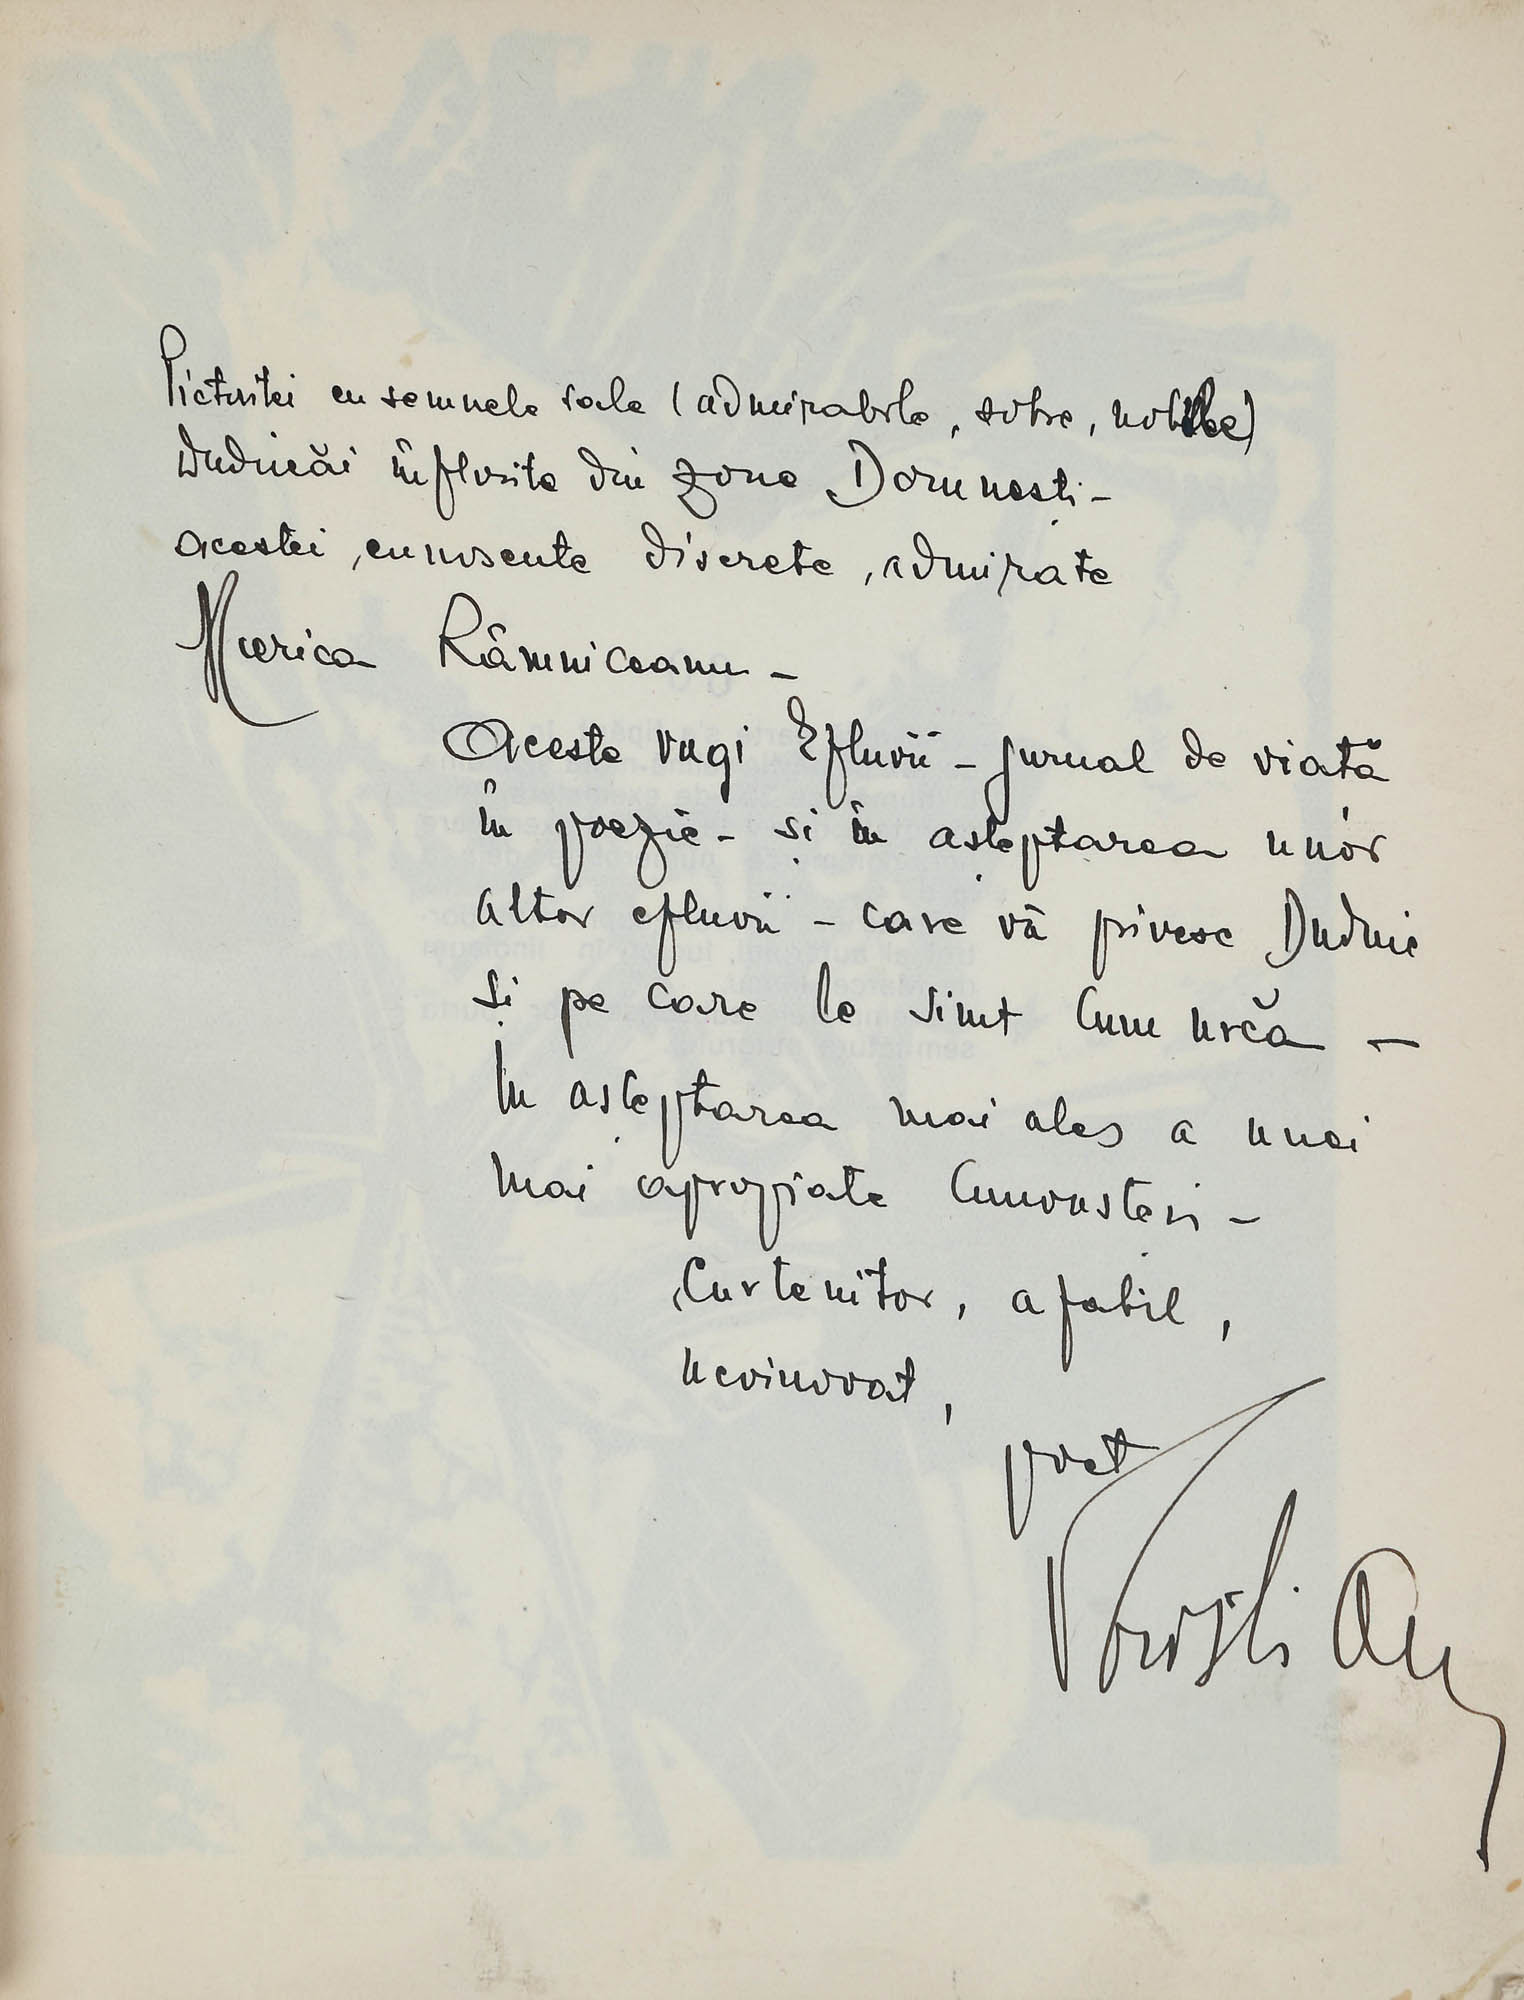 Pictoriței cu semnele sale (admirabile, sobre, nobile)
Duducăi înflorite din zone Domnești -
acestei, cunoscute discrete, admirate
Mierica Râmniceanu -
Aceste vagi Efluvii - jurnal de viață
în poezie - și în așteptarea unor
altor efluvii - care vă privesc Duduie
și pe care le simt cum urcă -
În așteptarea mai ales a unei
mai apropiate cunoașteri -
Curtenitor, afabil,
nevinovat,
poet